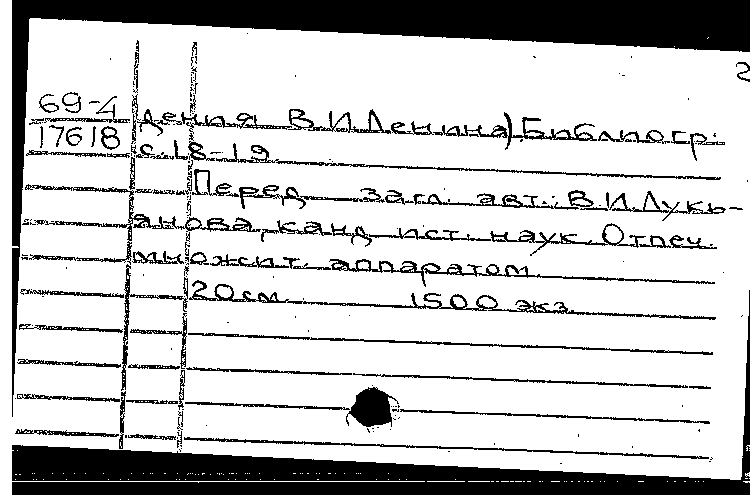 2
69-4 дения В.И.Ленина) Библиогр:
17618 с.18-19
Перед загл. авт.: В.И.Лукь-
янова, канд. ист. наук. Отпеч.
множит. аппаратом.
20см 1500 экз.